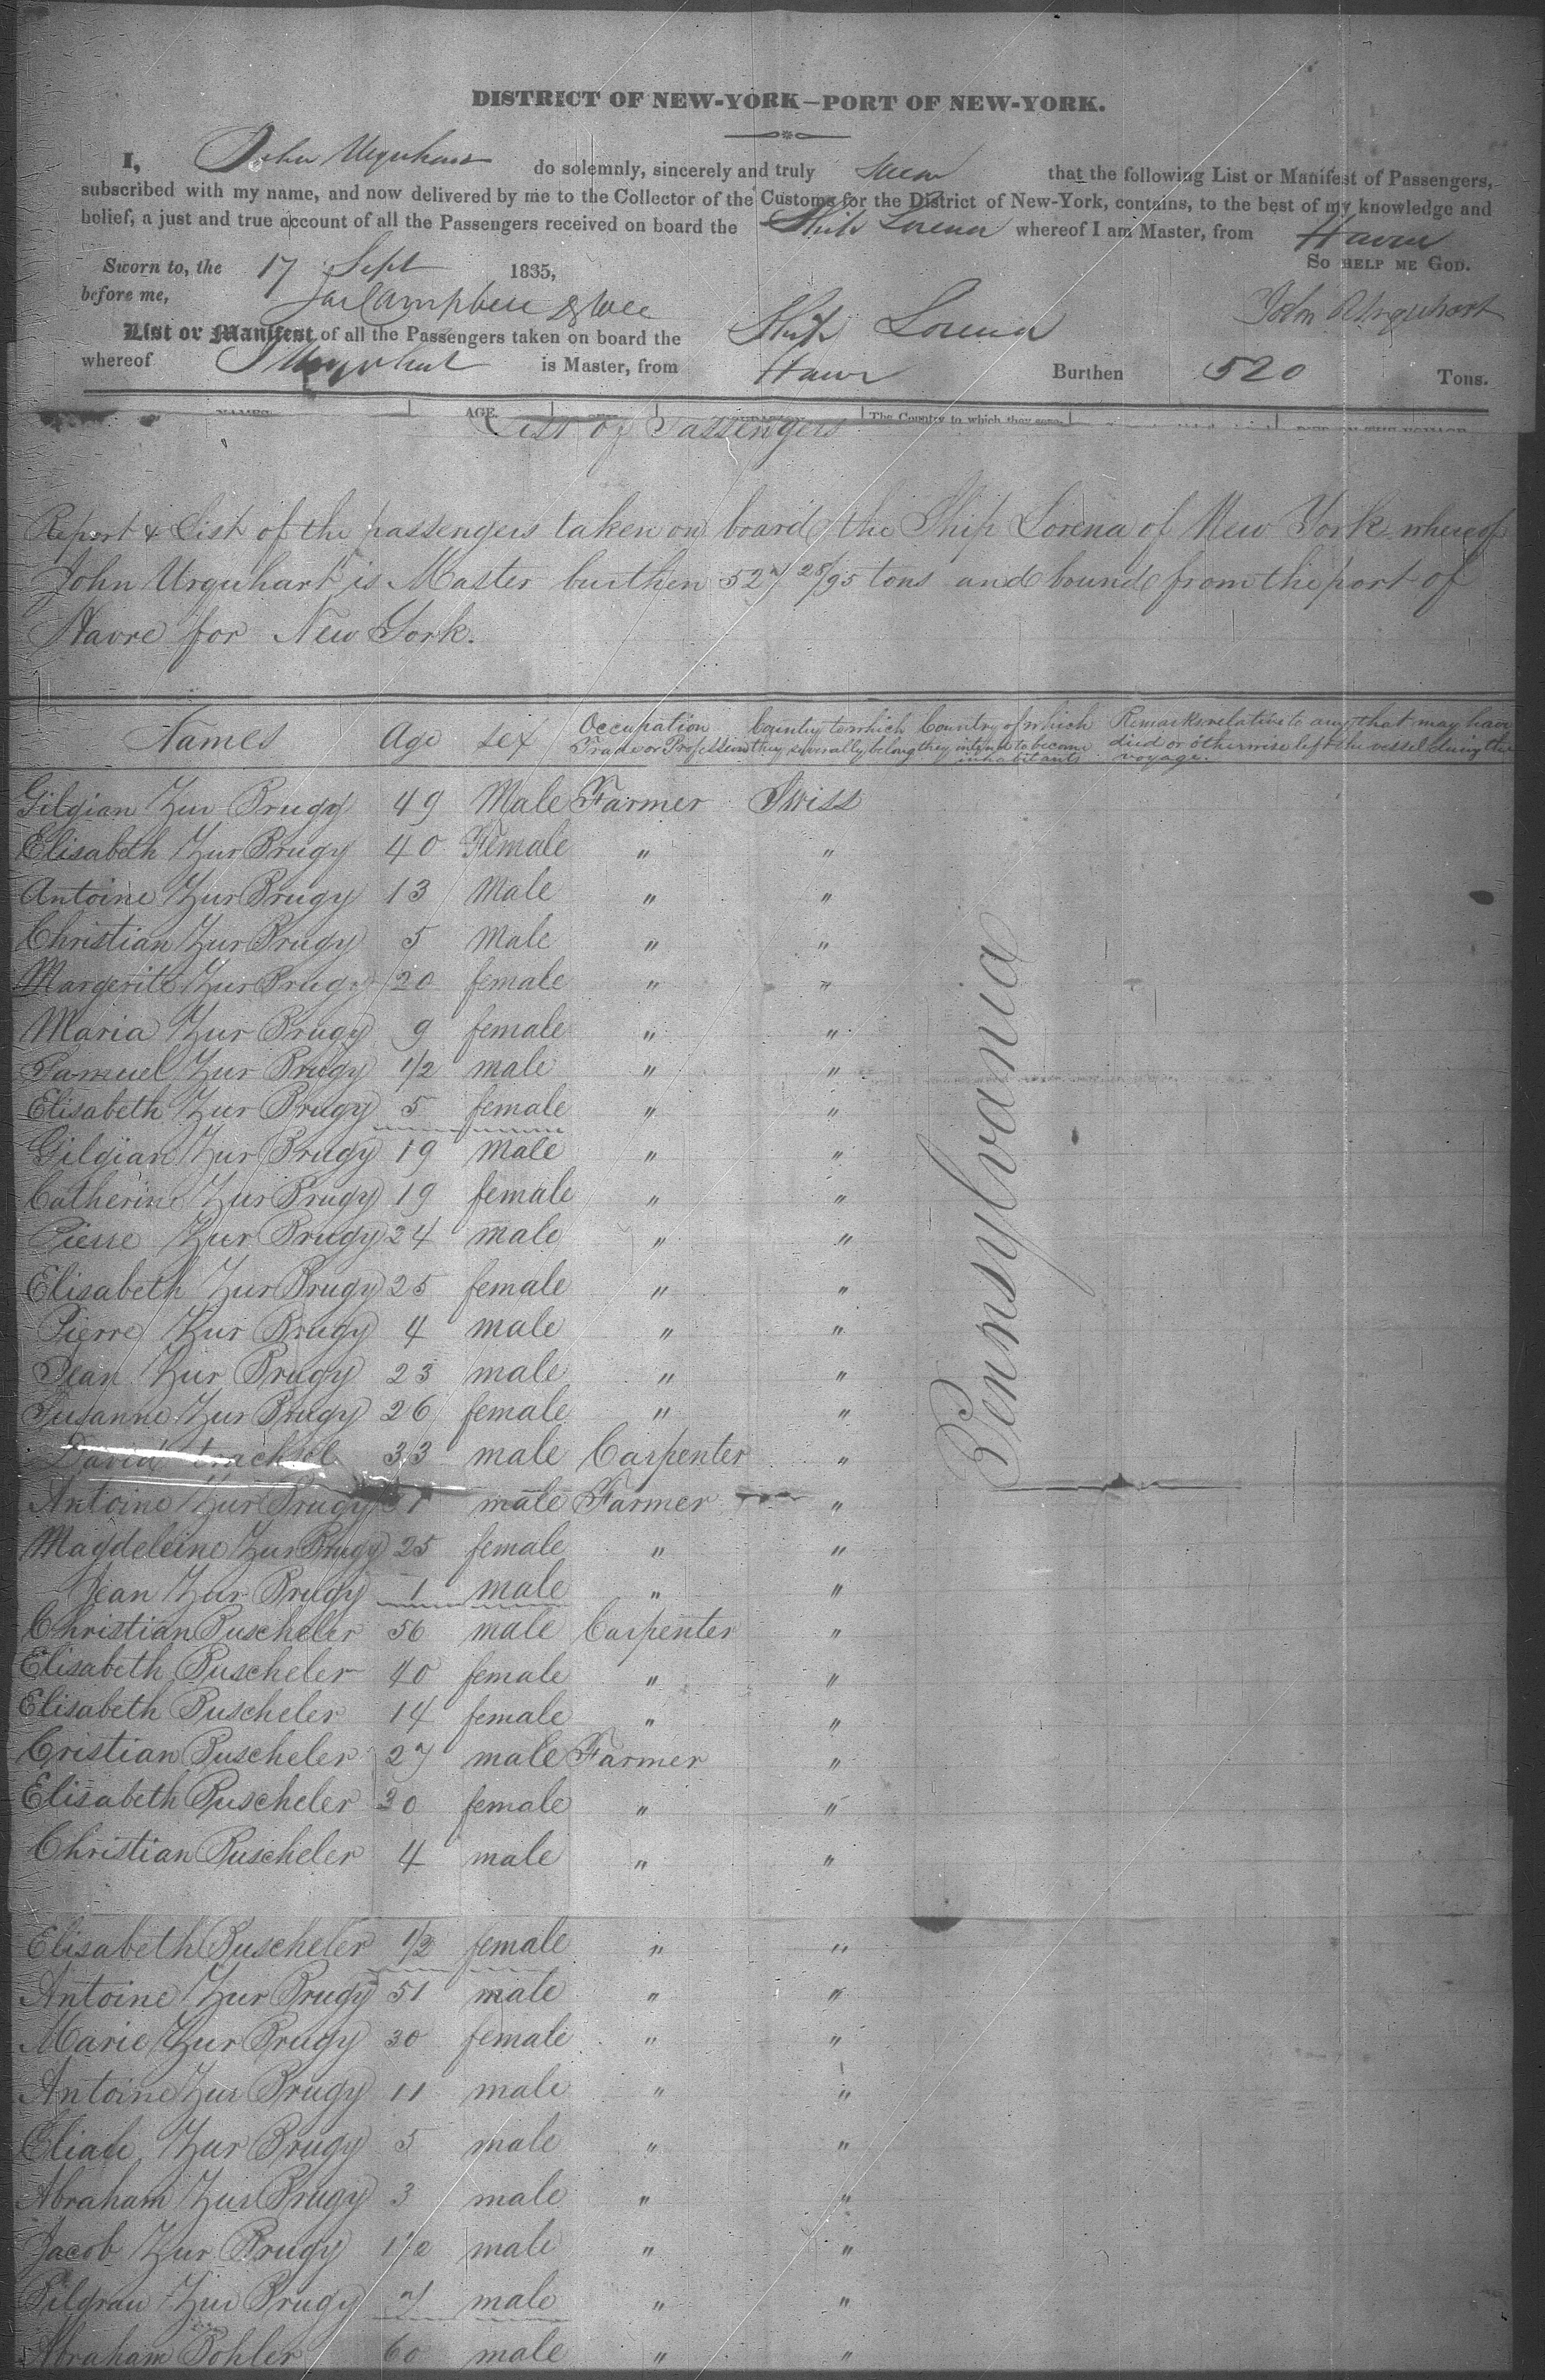 DISTRICT OF NEW-YORK—PORT OF NEW-YORK.
I, John Urquhart do solemnly, sincerely and truly swear that the following List or Manifest of Passengers,
subscribed with my name, and now delivered by me to the Collector of the Customs for the District of New-York, contains, to the best of my knowledge and
belief, a just and true account of all the Passengers received on board the Ship Lorena whereof I am Master, from Havre
Sworn to, the 17 Sept 1835, SO HELP ME GOD.
before me, Campbell John Urquhart
List or Manifest of all the Passengers taken on board the Ship Lorena
whereof J Urquhart is Master, from Havre Burthen 520 Tons.
NAMES. AGE. SEX. OCCUPATION. The Country to which they seve-
List of Passengers
Report & List of the passengers taken on board the Ship Lorena of New York whereof
John Urquhart is Master burthen 527 28/95 tons and bound from the port of
Havre for New York.
Names Age sex Occupation Trade or Profession Country to which they severally belong Country of which they intend to become inhabitants Remarks relative to any that may have died or otherwise left the vessel during the voyage.
Gilgian Zur Brugy 49 Male Farmer Swiss
Elisabeth Zur Brugy 40 Female " "
Antoine Zur Brugy 13 Male " "
Christian Zur Brugy 5 Male " "
Margerite Zur Brugy 20 female " "
Maria Zur Brugy 9 female " "
Samuel Zur Brugy 1/2 male " "
Elisabeth Zur Brugy 5 female " "
Gilgian Zur Brugy 19 Male " "
Catherine Zur Brugy 19 female " "
Pierre Zur Brugy 24 male " "
Elisabeth Zur Brugy 25 female " "
Pierre Zur Brugy 4 male " "
Jean Zur Brugy 23 male " "
Susanne Zur Brugy 26 female " "
David trachsel 33 male Carpenter "
Antoine Zur Brugy male Farmer "
Magdeleine Zur Brugy 25 female " "
Jean Zur Brugy 1 male " "
Christian Buscheler 56 male Carpenter "
Elisabeth Buscheler 40 female " "
Elisabeth Buscheler 14 female " "
Cristian Buscheler 27 male Farmer "
Elisabeth Buscheler 30 female " "
Christian Buscheler 4 male " "
Elisabeth Buscheler 1/2 female " "
Antoine Zur Brugy 51 male " "
Marie Zur Brugy 30 female " "
Antoine Zur Brugy 11 male " "
Eliah Zur Brugy 5 male " "
Abraham Zur Brugy 3 male " "
Jacob Zur Brugy 1/2 male " "
Zur Brugy 7 male " "
Abraham Bohler 60 male " "
Pennsylvania